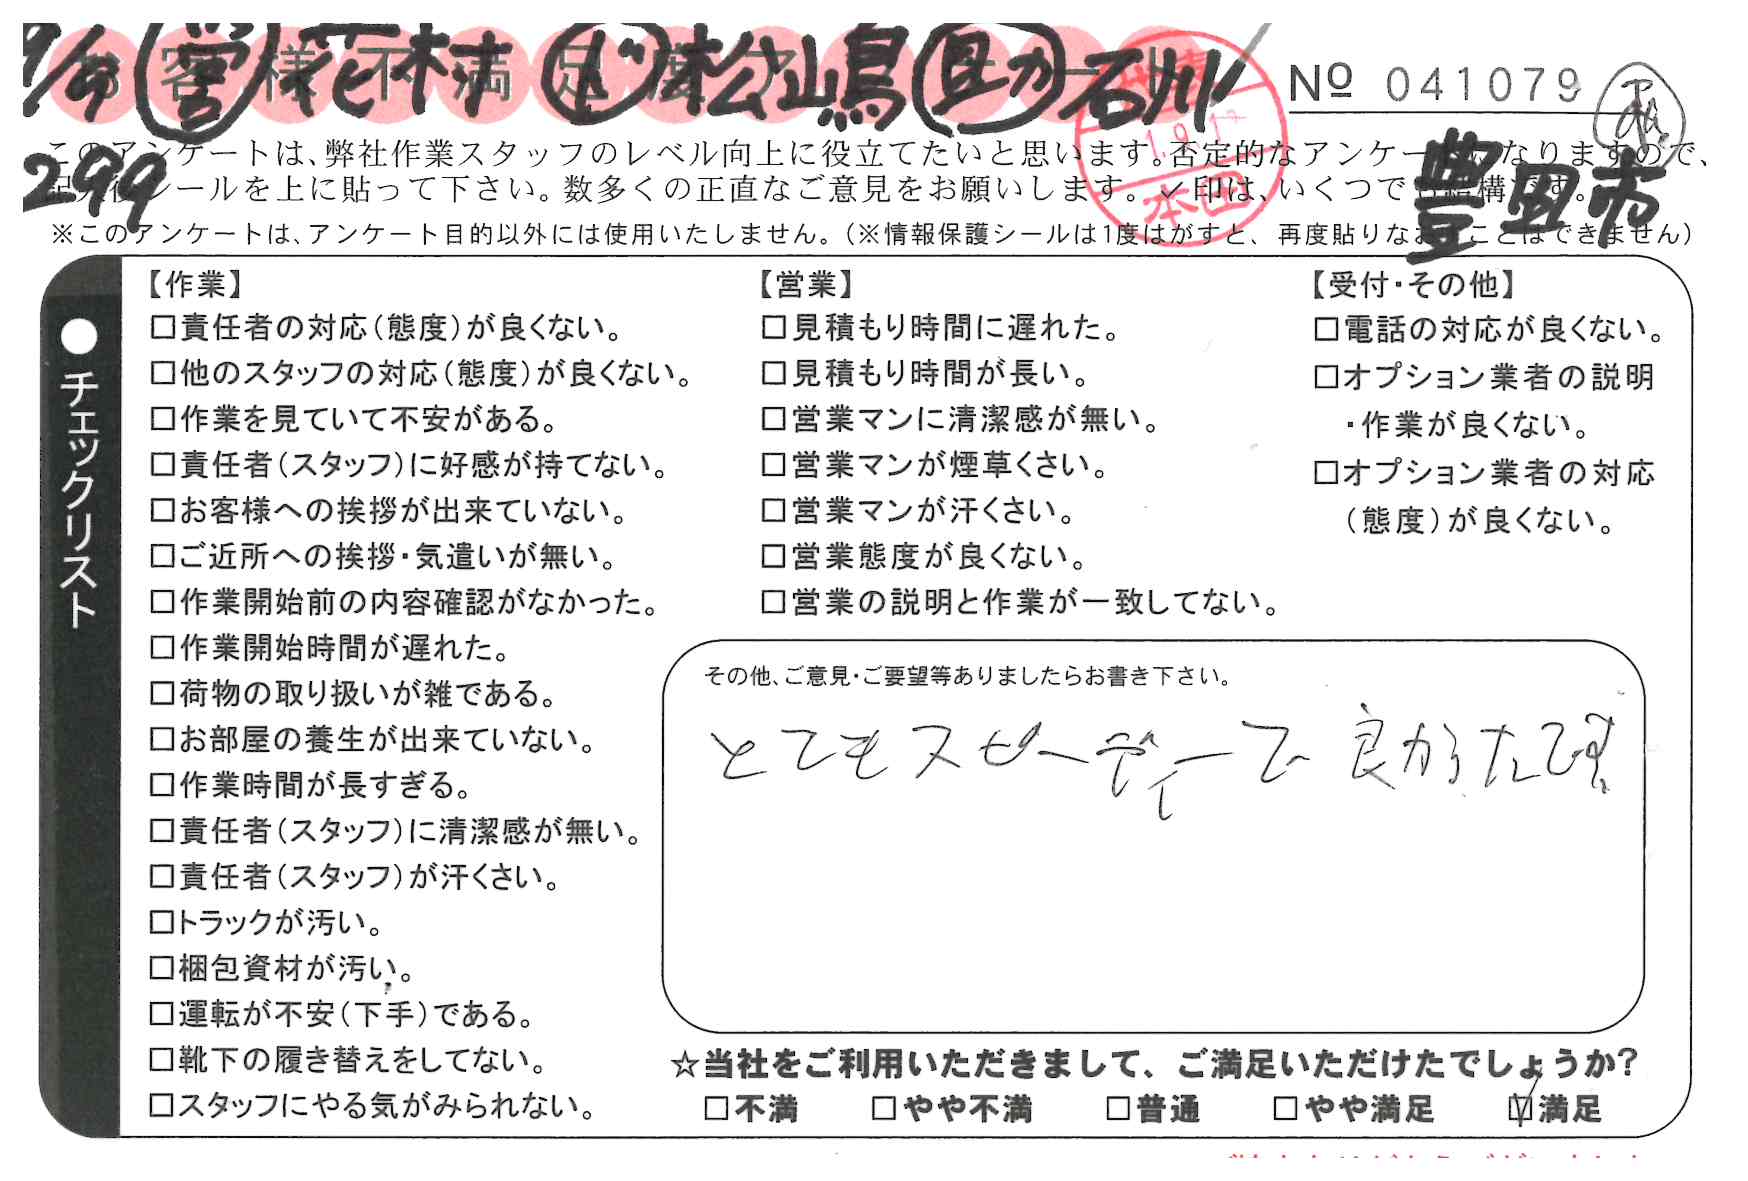 9/19 営 花村 ド 松山鳥 助 石川
お客様不満足度アンケート
No 041079
299
豊田市
このアンケートは、弊社作業スタッフのレベル向上に役立てたいと思います。否定的なアンケートになりますので、
記入後シールを上に貼って下さい。数多くの正直なご意見をお願いします。✓印は、いくつでも結構です。
※このアンケートは、アンケート目的以外には使用いたしません。(※情報保護シールは1度はがすと、再度貼りなおすことはできません)
本
●チェックリスト
【作業】
□責任者の対応(態度)が良くない。
□他のスタッフの対応(態度)が良くない。
□作業を見ていて不安がある。
□責任者(スタッフ)に好感が持てない。
□お客様への挨拶が出来ていない。
□ご近所への挨拶・気遣いが無い。
□作業開始前の内容確認がなかった。
□作業開始時間が遅れた。
□荷物の取り扱いが雑である。
□お部屋の養生が出来ていない。
□作業時間が長すぎる。
□責任者(スタッフ)に清潔感が無い。
□責任者(スタッフ)が汗くさい。
□トラックが汚い。
□梱包資材が汚い。
□運転が不安(下手)である。
□靴下の履き替えをしてない。
□スタッフにやる気がみられない。
【営業】
□見積もり時間に遅れた。
□見積もり時間が長い。
□営業マンに清潔感が無い。
□営業マンが煙草くさい。
□営業マンが汗くさい。
□営業態度が良くない。
□営業の説明と作業が一致してない。
【受付・その他】
□電話の対応が良くない。
□オプション業者の説明
・作業が良くない。
□オプション業者の対応
(態度)が良くない。
その他、ご意見・ご要望等ありましたらお書き下さい。
とてもスピーディーで 良かったです
☆当社をご利用いただきまして、ご満足いただけたでしょうか?
□不満 □やや不満 □普通 □やや満足 ☑満足